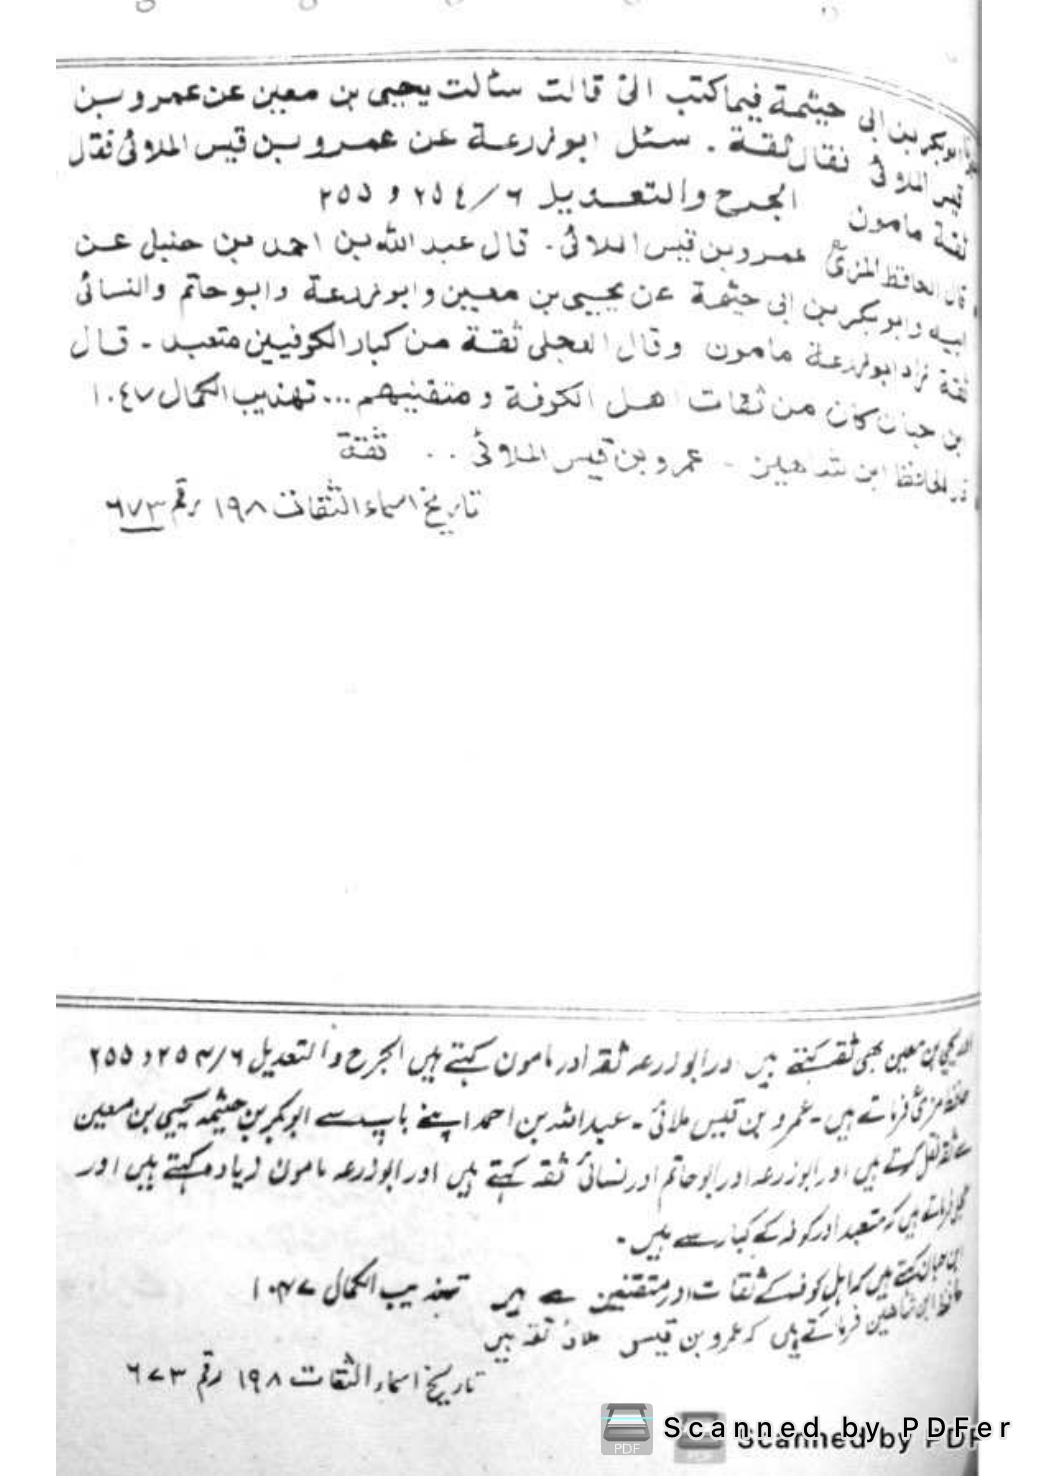 ابوبكر بن ابى خيثمة فيما كتب الىّ قالت سألت يحيى بن معين عن عمرو بن
قيس الملائى فقال ثقة . سئل ابو زرعة عن عمرو بن قيس الملائى فقال
ثقة مامون الجرح والتعديل ٦/٢٥٤ و ٢٥٥
قال الحافظ المزىؒ عمرو بن قيس الملائى - قال عبد الله بن احمد بن حنبل عن
ابيه وابو بكر بن ابى خيثمة عن يحيى بن معين وابو زرعة وابو حاتم والنسائى
ثقة زاد ابو زرعة مامون وقال العجلى ثقة من كبار الكوفيين متعبد - قال
بن حبان كان من ثقات اهل الكوفة و متقنيهم ... تهذيب الكمال ١٠٤٧
الحافظ ابن شاهين - عمرو بن قيس الملائى . . ثقة
تاريخ اسماء الثقات ١٩٨ رقم ٦٧٣
يحيى بن معين بھی ثقہ کہتے ہیں اور ابو زرعہ ثقہ اور مامون کہتے ہیں الجرح والتعدیل ۶/۲۵۴ و ۲۵۵
حافظ مزیؒ فرماتے ہیں - عمرو بن قیس ملائی - عبداللہ بن احمد اپنے باپ سے ابوبکر بن خیثمہ یحیی بن معین
سے ثقہ نقل کرتے ہیں اور ابوزرعہ اور ابو حاتم اور نسائی ثقہ کہتے ہیں اور ابوزرعہ مامون زیادہ کہتے ہیں اور
عجلی فرماتے ہیں کہ متعبد اور کوفہ کے کبار سے ہیں -
ابن حبان کہتے ہیں کہ اہل کوفہ کے ثقات اور متقنین سے ہیں تہذیب الکمال ۱۰۴۷
حافظ ابن شاھین فرماتے ہیں کہ عمرو بن قیس ملائی ثقہ ہیں
تاریخ اسماء الثقات ۱۹۸ رقم ۶۷۳
Scanned by PDFer
Scanned by PDF